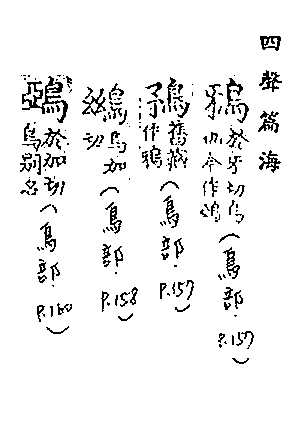 四聲篇海
鴉於牙切烏也今作鴉(鳥部.P.157)
舊藏作鴉(鳥部.P.157)
烏加切(鳥部.P.158)
於加切烏别名(鳥部.P.160)